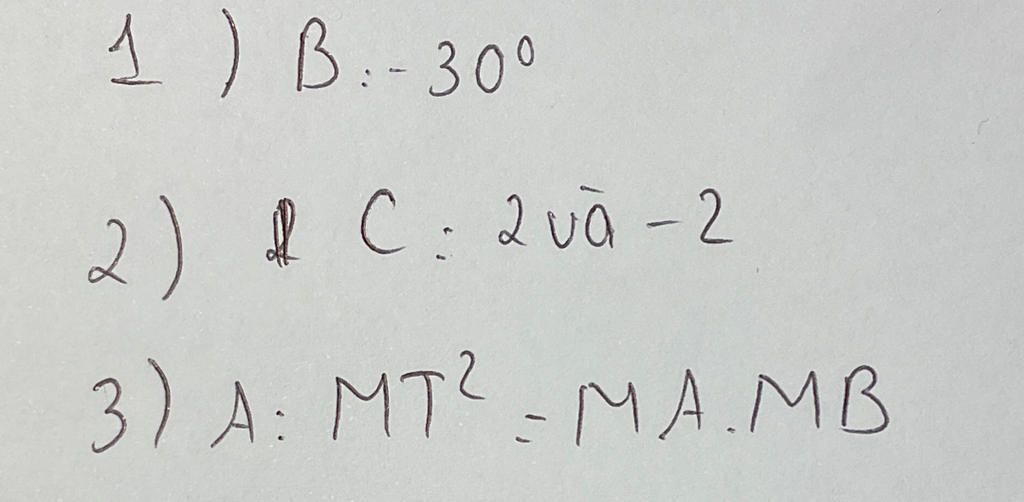 1) B: -30⁰
2) C: 2 và -2
3) A: MT² = MA.MB